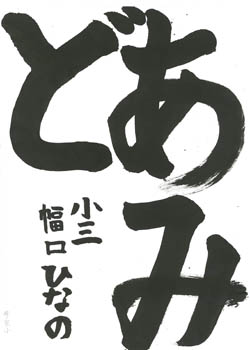 あみ
ど
小三
幅口ひなの